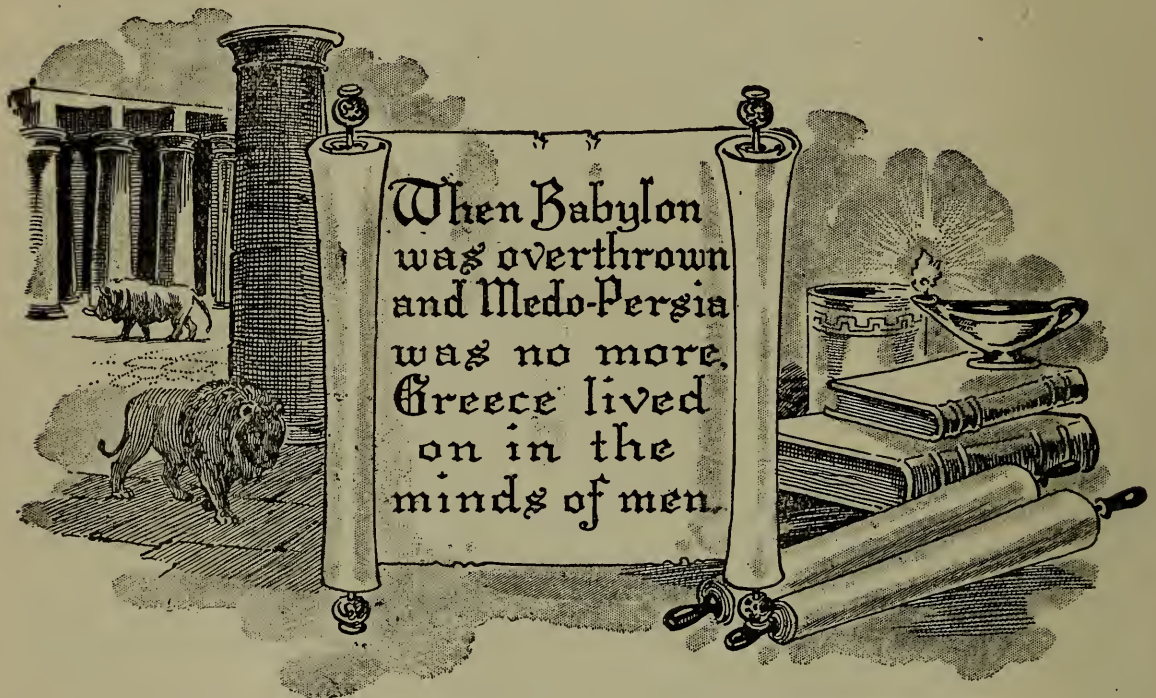 When Babylon
was overthrown
and Medo-Persia
was no more,
Greece lived
on in the
minds of men.